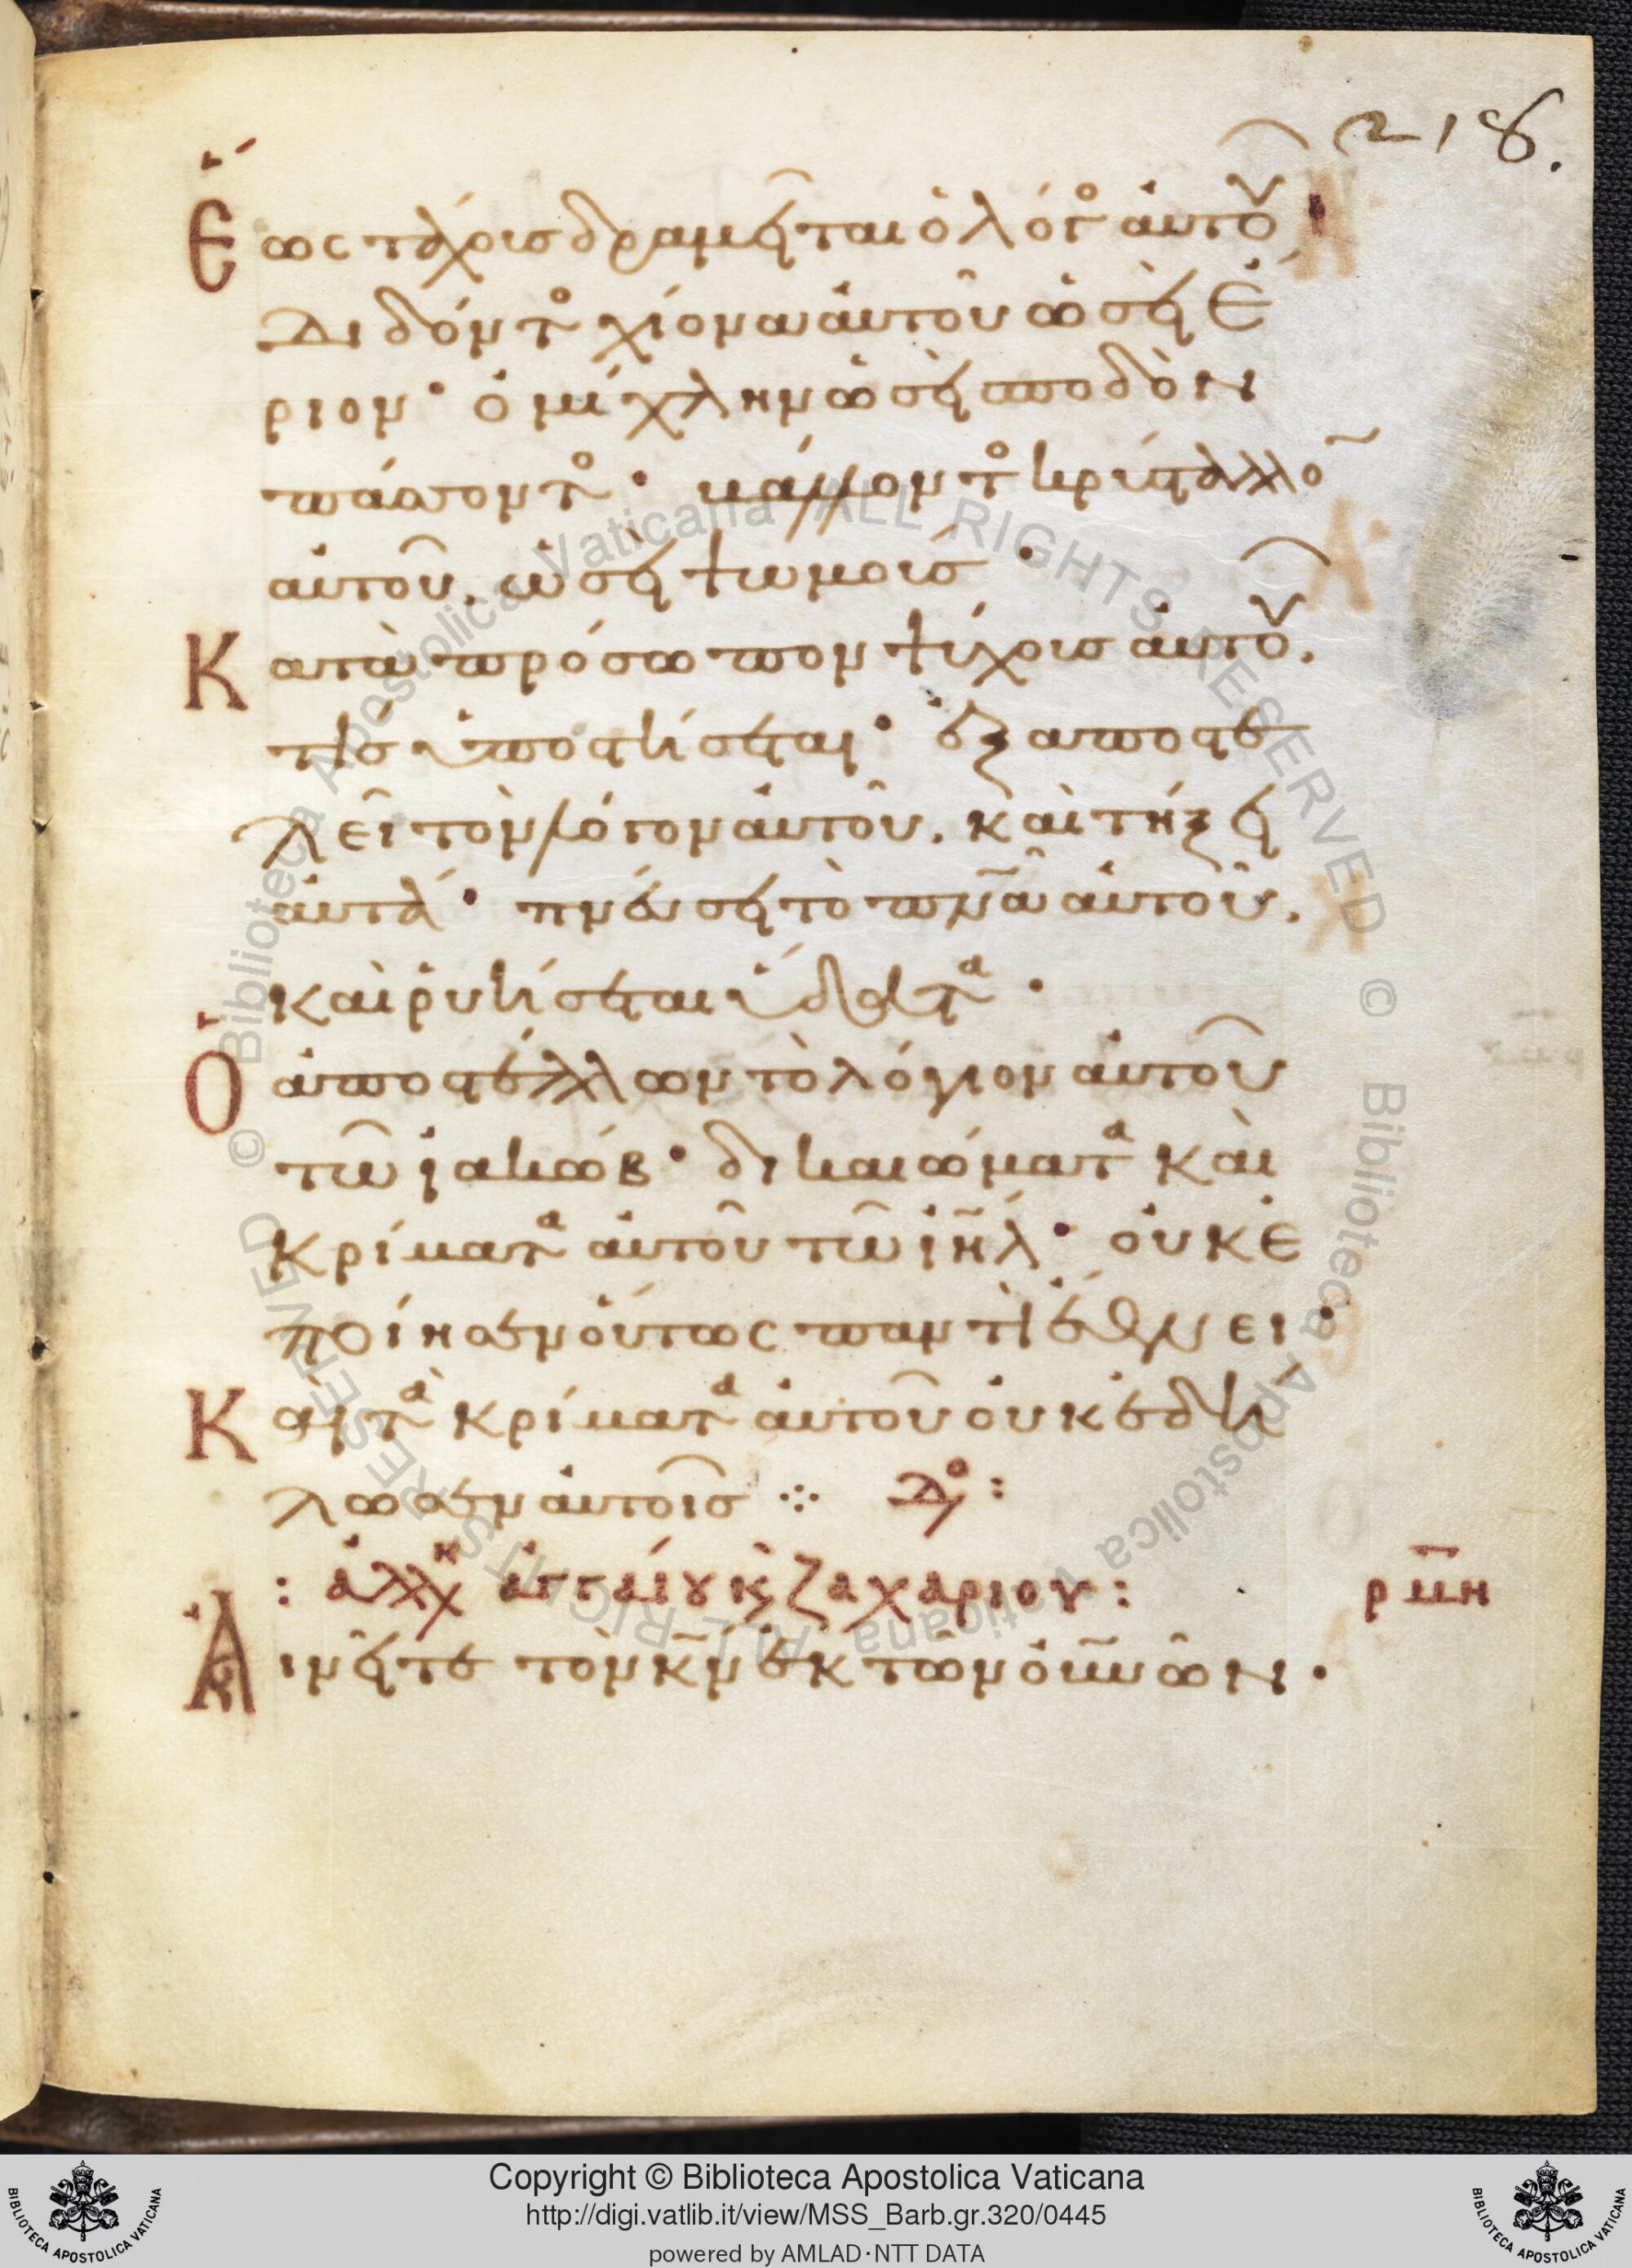 218.
Ἕως τάχοις δραμεῖται ὁ λόγος αὐτοῦ
Διδόντος χιόνα αὐτοῦ ὡσεὶ ἔ
ριον· ὀμίχλην ὡσεὶ σποδὸν
πάσσοντος· βάλλοντος κρύσταλλον
αὐτοῦ, ὡσεὶ ψωμούς·
Κατὰ πρόσωπον ψύχους αὐτοῦ,
τίς ὑποστήσεται· ἐξαποστε
λεῖ τὸν λόγον αὐτοῦ, καὶ τήξει
αὐτά· πνεύσει τὸ πνα αὐτοῦ,
καὶ ῥυήσεται ὕδατα·
Ὁ ἀποστέλλων τὸ λόγιον αὐτοῦ
τῶ ἰακώβ· δικαιώματα καὶ
κρίματα αὐτοῦ τῶ ιηλ· οὐκ ἐ
ποίησεν οὕτως παντὶ ἔθνει·
Καὶ τὰ κρίματα αὐτοῦ οὐκ ἐδή
λωσεν αὐτοῖς ⁘
: ἀλλ ἀγγαίου κ ζαχαρίου : ρμη
Αἰνεῖτε τὸν κν ἐκ τῶν οὐνῶν·
Copyright © Biblioteca Apostolica Vaticana
http://digi.vatlib.it/view/MSS_Barb.gr.320/0445
powered by AMLAD·NTT DATA